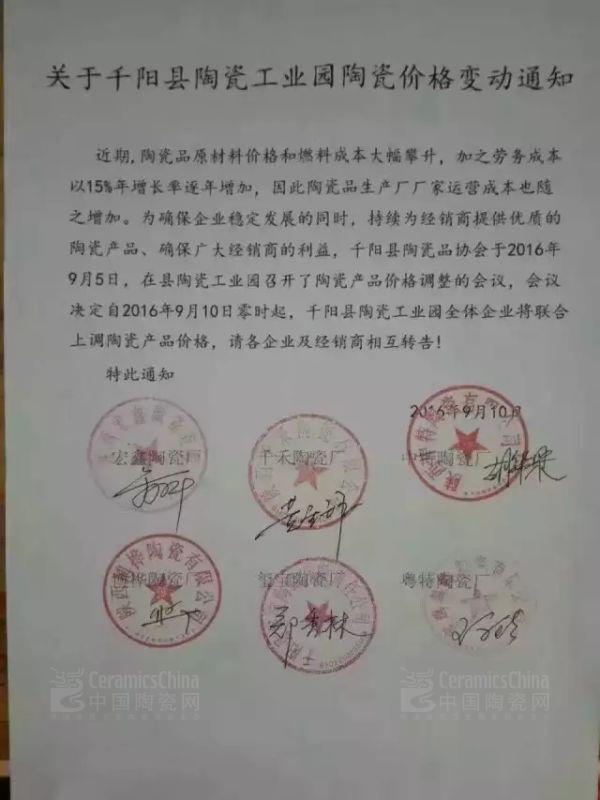 关于千阳县陶瓷工业园陶瓷价格变动通知
近期,陶瓷品原材料价格和燃料成本大幅攀升，加之劳务成本
以15%年增长率逐年增加，因此陶瓷品生产厂厂家运营成本也随
之增加。为确保企业稳定发展的同时，持续为经销商提供优质的
陶瓷产品、确保广大经销商的利益，千阳县陶瓷品协会于2016年
9月5日，在县陶瓷工业园召开了陶瓷产品价格调整的会议，会议
决定自2016年9月10日零时起，千阳县陶瓷工业园全体企业将联合
上调陶瓷产品价格，请各企业及经销商相互转告！
特此通知
2016年9月10日
宏鑫陶瓷厂 千禾陶瓷厂 中特陶瓷厂
桦陶瓷厂 玺宝陶瓷厂 粤特陶瓷厂
郑秀林
CeramicsChina
中国陶瓷网
CeramicsChina
中国陶瓷网